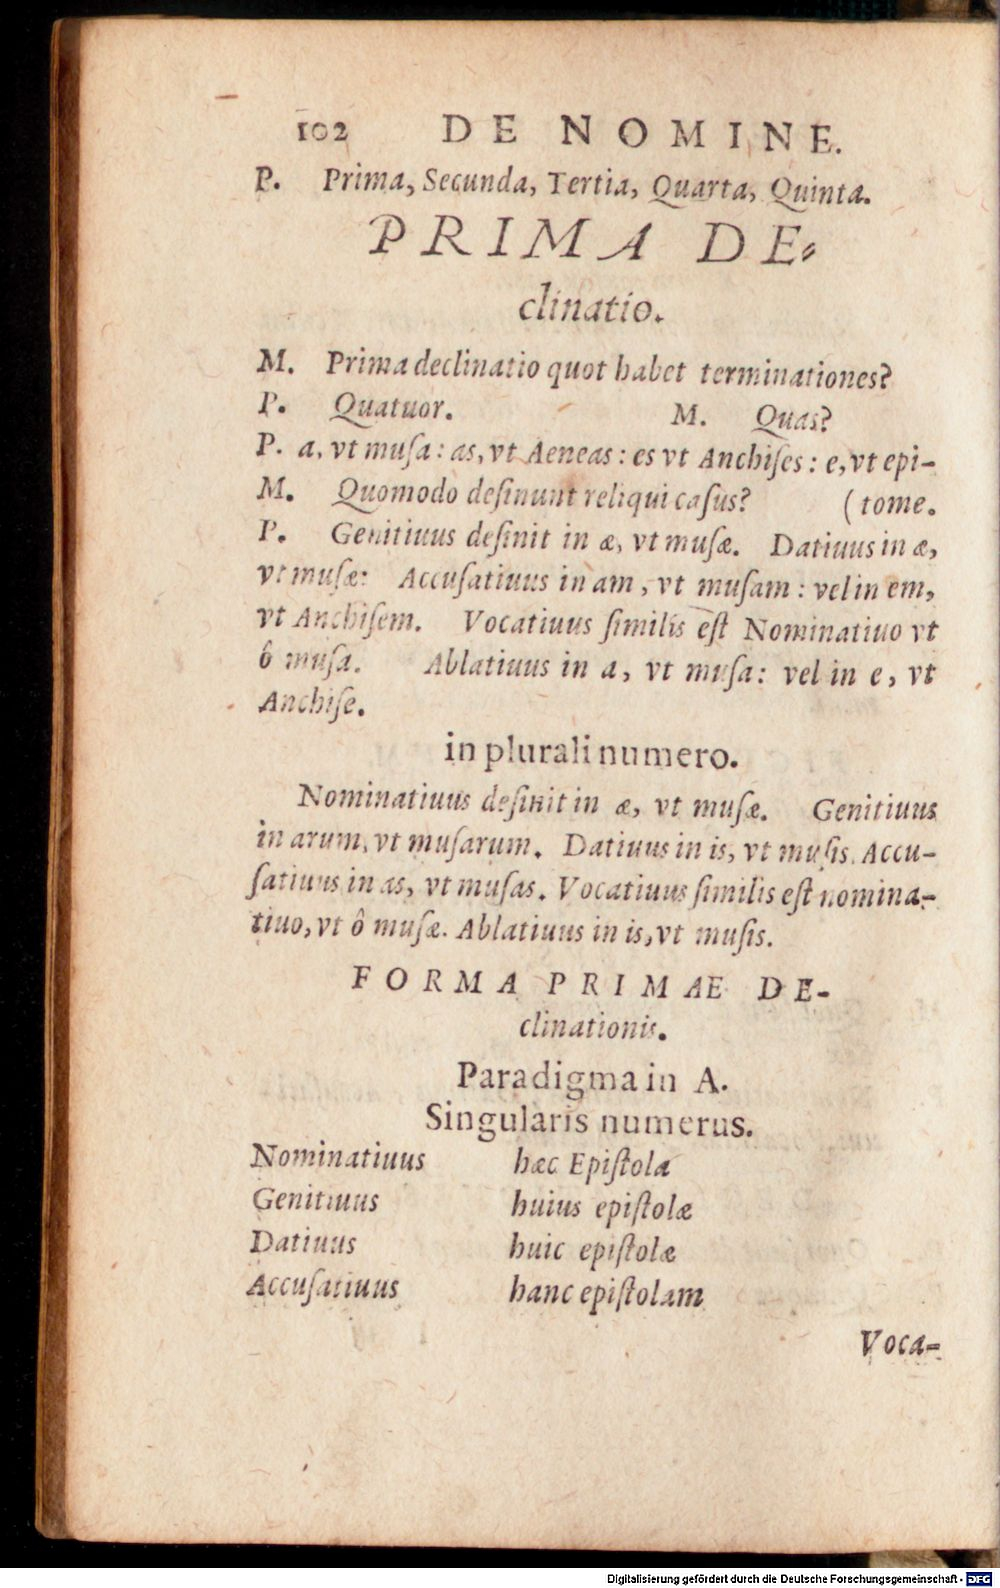 102 DE NOMINE.
P. Prima, Secunda, Tertia, Quarta, Quinta.
PRIMA DE-
clinatio.
M. Prima declinatio quot habet terminationes?
P. Quatuor. M. Quas?
P. a, vt muſa: as, vt Aeneas: es vt Anchiſes: e, vt epi-
M. Quomodo deſinunt reliqui caſus? (tome.
P. Genitiuus deſinit in æ, vt muſæ. Datiuus in æ,
vt muſæ: Accuſatiuus in am, vt muſam: vel in em,
vt Anchiſem. Vocatiuus ſimilis eſt Nominatiuo vt
ô muſa. Ablatiuus in a, vt muſa: vel in e, vt
Anchiſe.
in plurali numero.
Nominatiuus deſinit in æ, vt muſæ. Genitiuus
in arum, vt muſarum. Datiuus in is, vt muſis. Accu-
ſatiuus in as, vt muſas. Vocatiuus ſimilis eſt nomina-
tiuo, vt ô muſæ. Ablatiuus in is, vt muſis.
FORMA PRIMAE DE-
clinationis.
Paradigma in A.
Singularis numerus.
Nominatiuus hæc Epiſtola
Genitiuus huius epiſtolæ
Datiuus huic epiſtolæ
Accuſatiuus hanc epiſtolam
Voca-
Digitalisierung gefördert durch die Deutsche Forschungsgemeinschaft - DFG